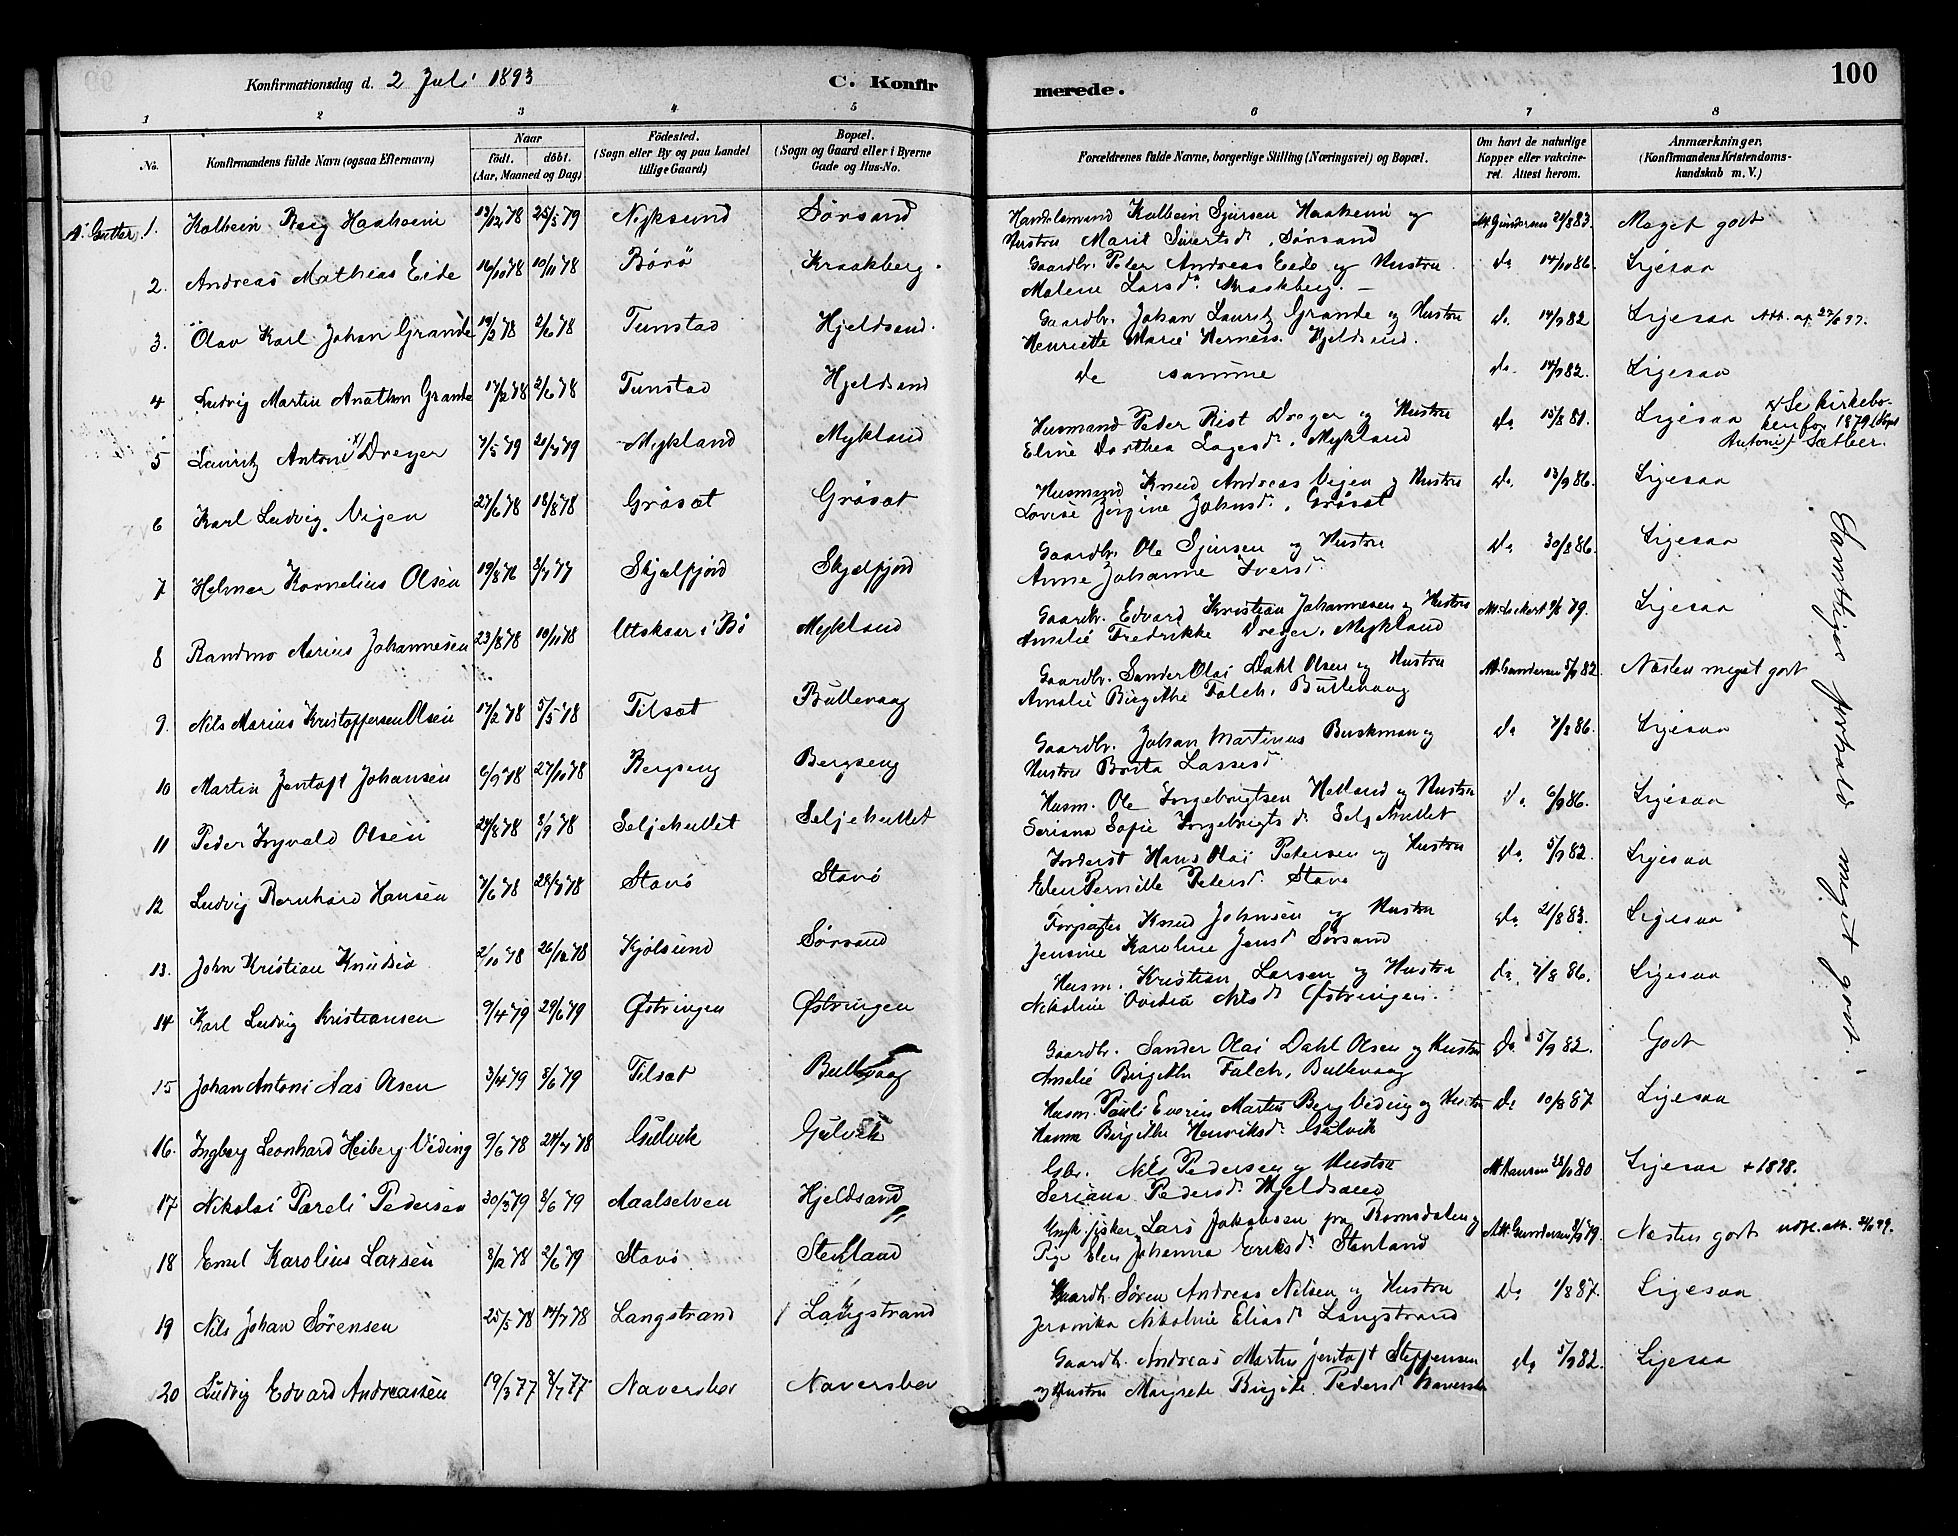 Konfirmationsdag d. 2 Juli 1893
C. Konfir
merede.
100
1 2 3 4 5 6 7 8
No.
Konfirmandens fulde Navn (ogsaa Efternavn)
Naar
födt. döbt.
(Aar, Maaned og Dag)
Födested.
(Sogn eller By og paa Landet
tillige Gaard)
Bopæl.
(Sogn og Gaard eller i Byerne
Gade og Hus-No.
Forældrenes fulde Navne, borgerlige Stilling (Næringsvei) og Bopæl.
Om havt de naturlige
Kopper eller vakcine-
ret. Attest herom.
Anmærkninger.
(Konfirmandens Kristendoms-
kundskab m. V.)
Gutter 1. Kolbein Haaheim 13/12 78 25/5 79 Nyksund Sørsand
Handelsmand Kolbein Sjursen Haaheim og
Hustru Marit Sivertsd. Sørsand
Att. Gundersen 21/8 83. Meget godt
2. Andreas Mathias Eide 16/10 78 10/11 78 Börö Kraakberg.
Gaardbr. Peter Andreas Eide og Hustru
Malene Larsd. Kraakberg. —
Do 14/10 86. Ligesaa
3. Olav Karl Johan Grande 19/2 78 2/6 78 Tunstad Hjeldsand.
Gaardbr. Johan Lauritz Grande og Hustru
Henriette Marie Herness. Hjeldsand.
Do. 14/9 82 Ligesaa Att. af 27/6 97.
4 Ludvig Martin Anathon Grande 17/2 78 2/6 78 Tunstad Hjeldsand
de samme
Do. 14/9 82. Ligesaa
5 Lauritz Antoni x) Dreyer 7/5 79 20/7 79 Mykland Mykland
Husmand Peder Rist Dreyer og Hustru
Eline Dorthea Lagesd. Mykland
Do 15/8 81. Ligesaa x) Se kirkebo-
ken for 1879 (døpt
Antoni) Sætber.
6 Karl Ludvig Vijen 27/6 78 18/8 78 Gröset Gröset
Husmand Knud Andreas Vijen og Hustru
Lovise Jørgine Johnsd. Grøset
Do. 13/9 86. Ligesaa
7 Helmer Kornelius Olsen 19/8 76 3/7 77 Skjelfjord Skjelfjord
Gaardbr. Ole Sjursen og Hustru
Anne Johanne Iversd.
Do 30/8 86. Ligesaa
8 Randmo Marius Johannesen 23/8 78 10/11 78 Utskaar i Bö Mykland
Gaardbr. Edvard Kristian Johannesen og Hustru
Amalie Fredrikke Dreyer. Mykland
79. Ligesaa
9. Nils Marius Kristoffersen Olsen 17/2 78 5/5 78 Tilset Bullevaag
Gaardbr. Sander Olai Dahl Olsen og Hustru
Amalie Birgithe Falch, Bullevaag
Att. Gundersen 5/9 82. Næsten meget godt
10 Martin Jentoft Johansen 6/9 78 27/10 78 Bergseng Bergseng
Gaardbr. Johan Martinus Buskman og
Hustru Borita Lassesd.
Do 7/8 86. Ligesaa
11 Peder Ingvald Olsen 24/8 78 8/9 78 Seljehullet Seljehullet
Husm. Ole Ingebrigtsen Helland og Hustru
Seriana Sofie Ingebrigtsd. Seljehullet
Do 6/9 86. Ligesaa
12 Ludvig Bernhard Hansen 7/6 78 28/7 78 Stavö Stavö
Inderst Hans Olai Petersen og Hustru
Elen Pernille Petersd. Stavø
Do. 5/9 82. Ligesaa
13. John Kristian Knudsen 2/10 78 26/12 78 Kjölsund Sørsand
Forpagter Knud Johnsen og Hustru
Jensine Karoline Jensd Sørsand
Do. 21/8 83. Ligesaa
14 Karl Ludvig Kristiansen 9/4 79 29/6 79 Østringen Østringen
Husm. Kristian Larsen og Hustru
Nikoline Ovedia Nilsd Østringen.
Do. 7/8 86. Ligesaa
15 Johan Antoni Aas Olsen 3/4 79 8/6 79 Tilset Bullevaag
Gaardbr. Sander Olai Dahl Olsen og Hustru
Amalie Birgithe Falch, Bullevaag
Do 5/9 82. Godt
16. Ingberg Leonhard Heiberg Viding 9/6 78 28/7 78 Gulvik Gulvik
Husm. Pauli Everin Martin Berg Viding og Hustru
Hanna Birgithe Henriksd. Gulvik
Do 10/8 87. Ligesaa
17 Nikolai Pareli Pedersen 30/3 79 8/6 79 Maalselven Hjeldsand
Gbr. Nils Pedersen og Hustru
Seriana Pedersd. Hjeldsand
Att. Hansen 80 Ligesaa + 1898.
18 Emil Karolius Larsen 3/12 78 2/6 79 Stavö Stenland
Ungk. fisker Lars Jakobsen fra Romsdalen og
Pige Elen Johanna Eriksd. Stenland
Att. Gundersen 79. Næsten godt udst. att. 99.
19 Nils Johan Sørensen 25/5 78 14/7 78 Langstrand Langstrand
Gaardb. Søren Andreas Nilsen og Hustru
Jeronika Nikoline Eliasd. Langstrand
Do 1/8 87. Ligesaa
20 Ludvig Edvard Andreassen 19/3 77 8/7 77 Naversber Naversber
Gaardb. Andreas Martin Jentoft Steffensen
og Hustru Margrete Birgite Pedersd
Do 5/9 82. Ligesaa
Samtliges forhold meget godt.